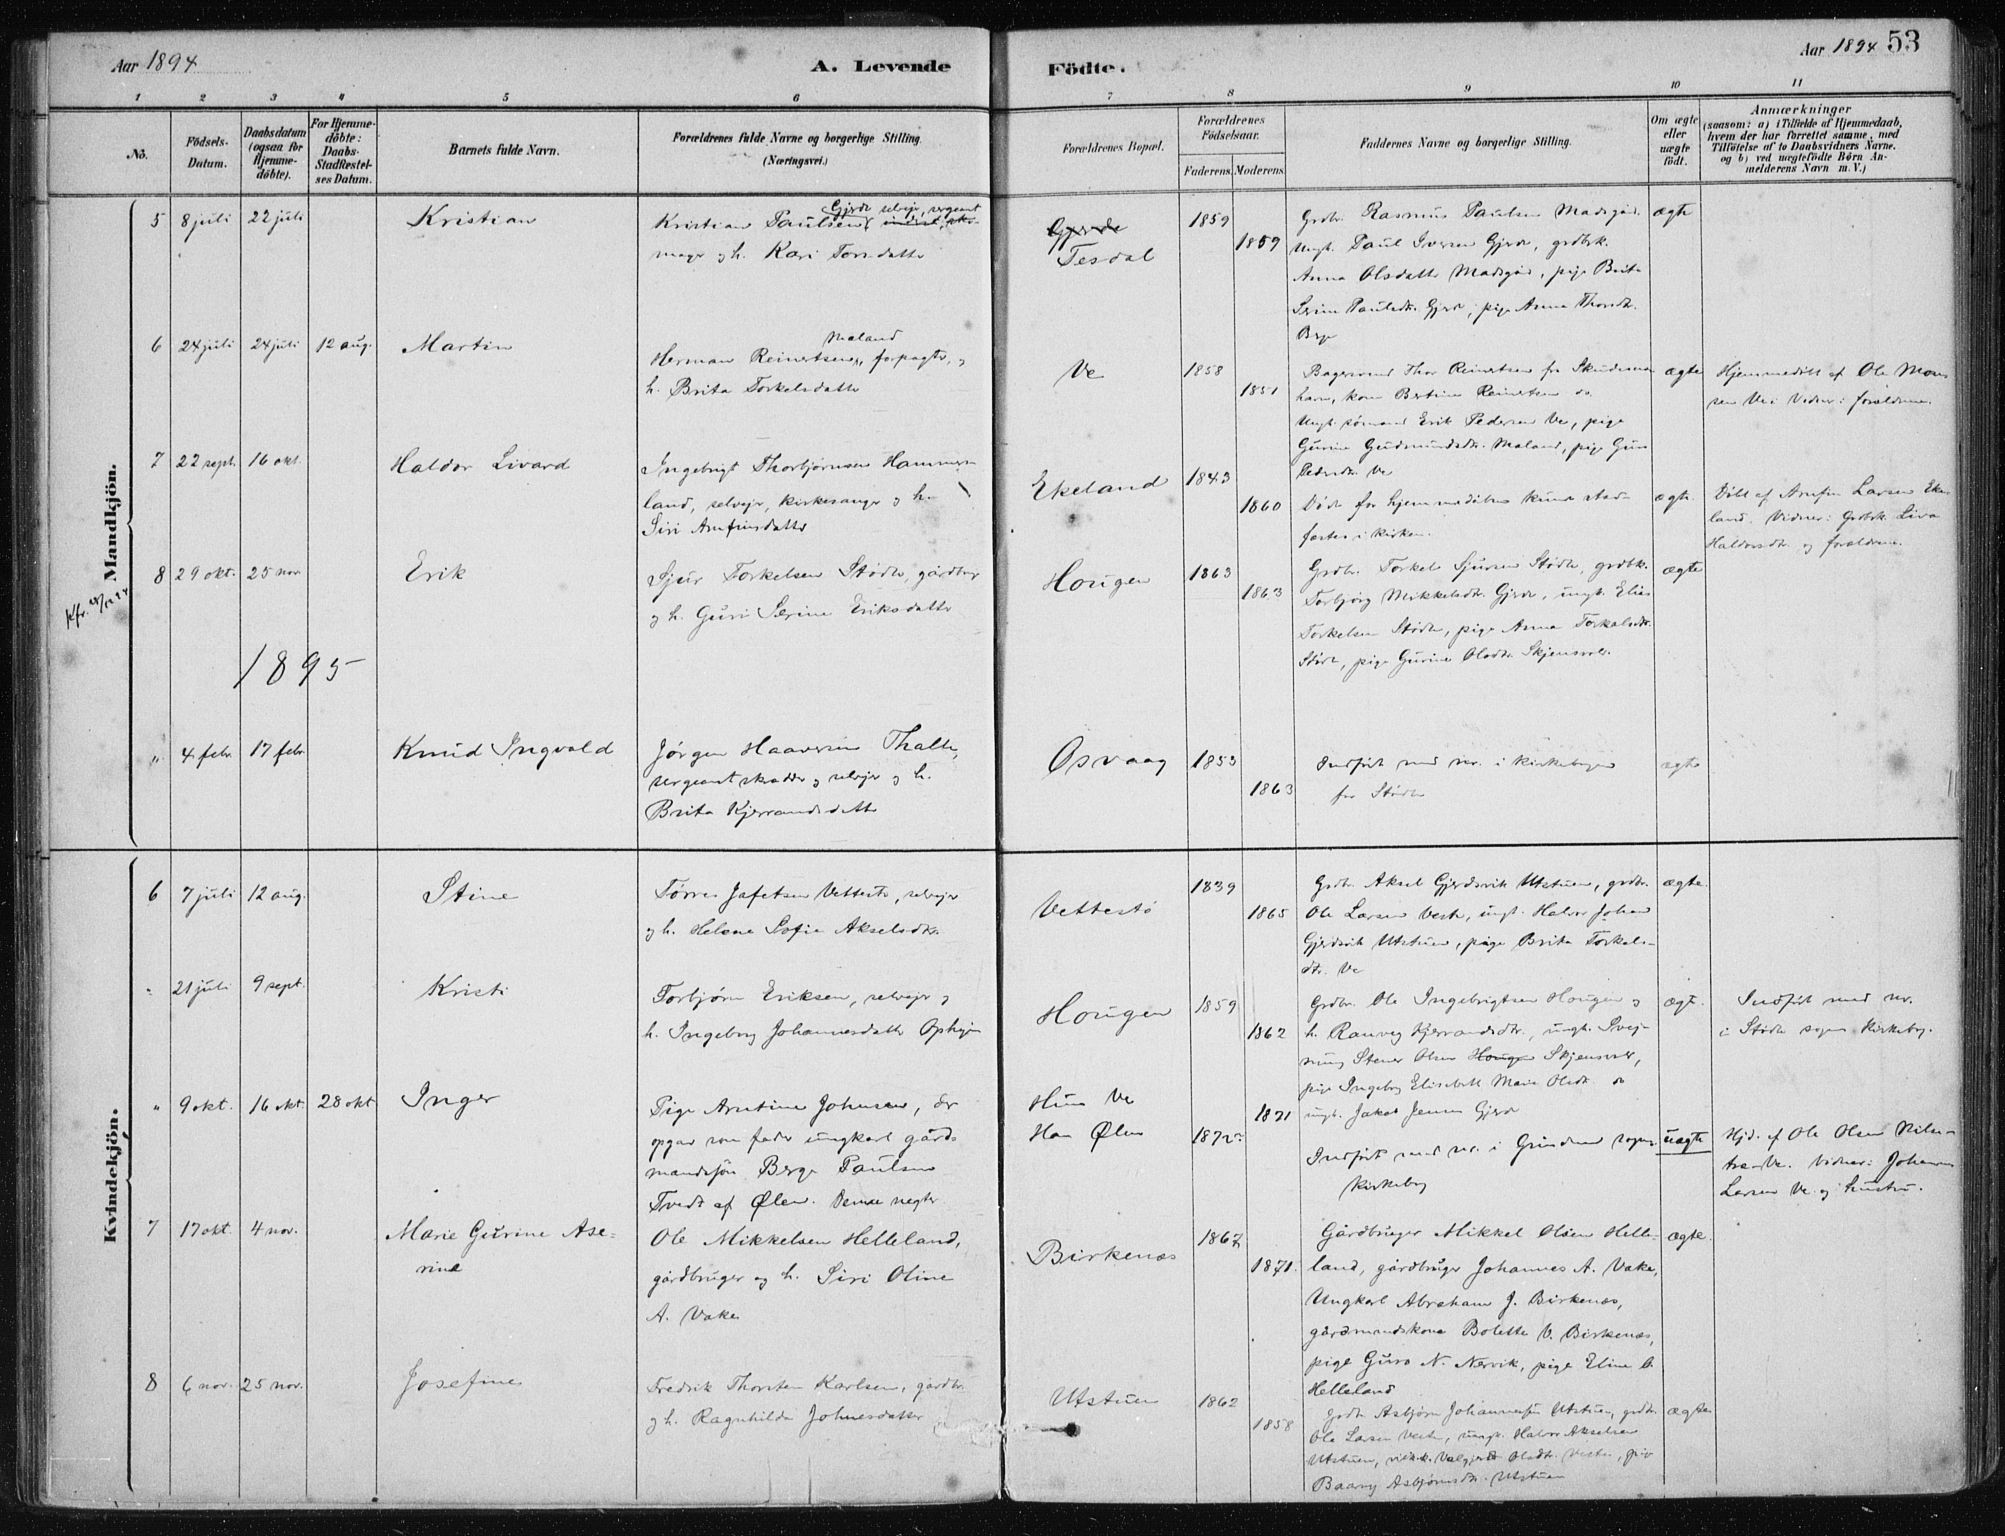 Aar 1894
A. Levende
Födte.
Aar 1894 53
1 2 3 4 5 6 7 8 9 10 11
No.
Födsels-
Datum.
Daabsdatum
(ogsaa for
Hjemme-
döbte).
For Hjemme-
döbte:
Daabs-
Stadfæstel-
ses Datum.
Barnets fulde Navn.
Forældrenes fulde Navne og borgerlige Stilling.
(Næringsvei.)
Forældrenes Bopæl.
Forældrenes
Födselsaar.
Faderens. Moderens.
Faddernes Navne og borgerlige Stilling.
Om ægte
eller
uægte
födt.
Anmærkninger
(saasom: a) i Tilfælde af Hjemmedaab,
hvem der har forrettet samme, med
Tilföielse af to Daabsvidners Navne.
og b) ved uægtefödte Börn An-
melderens Navn m. V.)
Mandkjön.
5 8 juli 22 juli Kristian
Gjerde selvejer, sergeant
Kristian Paulsen
mager og h. Kari Torsdatter
Gjerde
Tesdal
1859
1859
Grdbr. Rasmus Paulsen Madsgård.
Ungk. Paul Iversen Gjerde, grdbrk.
Anna Olsdatter Madsgård, pige Brita
Serine Paulsdtr. Gjerde, pige Anna Thorsdtr.
Berge
ægte
6 24 juli 24 juli 12 aug. Martin
Maland
Herman Reinertsen, forpagter, og
h. Brita Torkelsdatter
Ve
1858
1851
Bagersvend Thor Reinertsen fra Skudenes
havn, kone Bertine Reinertsen do.
Ungk. sömand Erik Pedersen Ve, pige
Gurine Gudmundsdtr. Maland, pige Guri
Pedersdtr. Ve
ægte
Hjemmedöbt af Ole Mons
sen Ve. Vidner: forældrene.
7 22 sept. 16 okt. Haldor Sivard
Ingebrigt Thorbjörnsen Hammers
land, selvejer, kirkesanger og h.
Siri Arnfinsdatter
Ekeland
1843
1860
Döde för hjemmedåben kunde stad-
fæstes i kirken.
ægte.
Döbt af Arnfin Larsen Eke
land. Vidner: Grdbrk. Siva
Haldorsdtr. og forældrene.
8 29 okt. 25 nov Erik
Sjur Torkelsen Stödle, gårdbrug
og h. Guri Serine Eriksdatter
Hougen
1863
1863
Grdbr. Torkel Sjursen Stödle, grdbrk.
Torbjörg Mikkelsdtr. Gjerde, ungk. Elias
Torkelsen Stödle, pige Anna Torkelsdtr.
Stödle, pige Gurine Olsdtr. Skjensvold.
ægte
Kfr.
1895
" 4 febr. 17 febr. Knud Ingvald
Jörgen Haaversen Thalle,
sergeant skrædder og selvejer og h.
Brita Kjerrandsdatter
Osvaag
1853
1863
Indfört med nr. i kirkebogen
for Stödle
ægte
Kvindekjön.
6 7 juli 12 aug. Stine
Törres Jafetsen Vettestö, selvejer
og h. Helene Sofie Akselsdtr.
Vettestö
1839
1865
Grdbr. Aksel Gjerdsvik Utstuen, grdbr.
Ole Larsen Vestre, ungk. Halvor Johan
Gjerdsvik Utstuen, pige Brita Torkels-
dtr. Ve
ægte.
" 21 juli 9 sept. Kristi
Torbjörn Eriksen, selvejer og
h. Ingeborg Johannesdatter
Hougen
1859
1862
Grdbr. Ole Ingebrigtsen Hougen og
h. Ranveg Kjerrandsdtr., ungk. Svej-
nung Stener Olsen Hougen Skjensvold,
pige Ingeborg Elisabeth Marie Olsdtr. do
ungk. Jakob Jensen Gjerde
ægte.
Indfört med nr.
i Stödle sogns kirkebog.
" 9 okt. 16 okt. 28 okt Inger
Pige Arntine Johnsen, der
opgav som fader ungkarl gårds
mandssön Berge Paulsen
Tvedt af Ölen. Denne negter
Hun Ve
Han Ölen
1872
1871
Indfört med nr. i Grindem sogns
Kirkebog
uægte
Hjd. af Ole Olsen Nils-
træ Ve. Vidner: Johannes
Larsen Ve og hustru.
7 17 okt. 4 nov. Marie Gurine Ase-
rine
Ole Mikkelsen Helleland,
gårdbruger og h. Siri Oline
A. Vake
Birkenæs
1867
1871.
Gårdbruger Mikkel Olsen Helle-
land, gårdbruger Johannes A. Vake,
Ungkarl Abraham J. Birkenæs,
gårdmandskone Bolette V. Birkenæs,
pige Guro N. Nervik, pige Eline O.
Helleland
ægte.
8 6 nov. 25 nov. Josefine
Fredrik Thorsten Karlsen, gårdbr.
og h. Ragnhilda Johnesdatter
Utstuen
1862
1858
Grdbr. Asbjörn Johannessen Utstuen, grdbr.
Ole Larsen Vestre, ungk. Halvor Akselsen
Utstuen, Valgjerd Olsdtr. Vestre, pige
Baarny Asbjörnsdtr. Utstuen
ægte